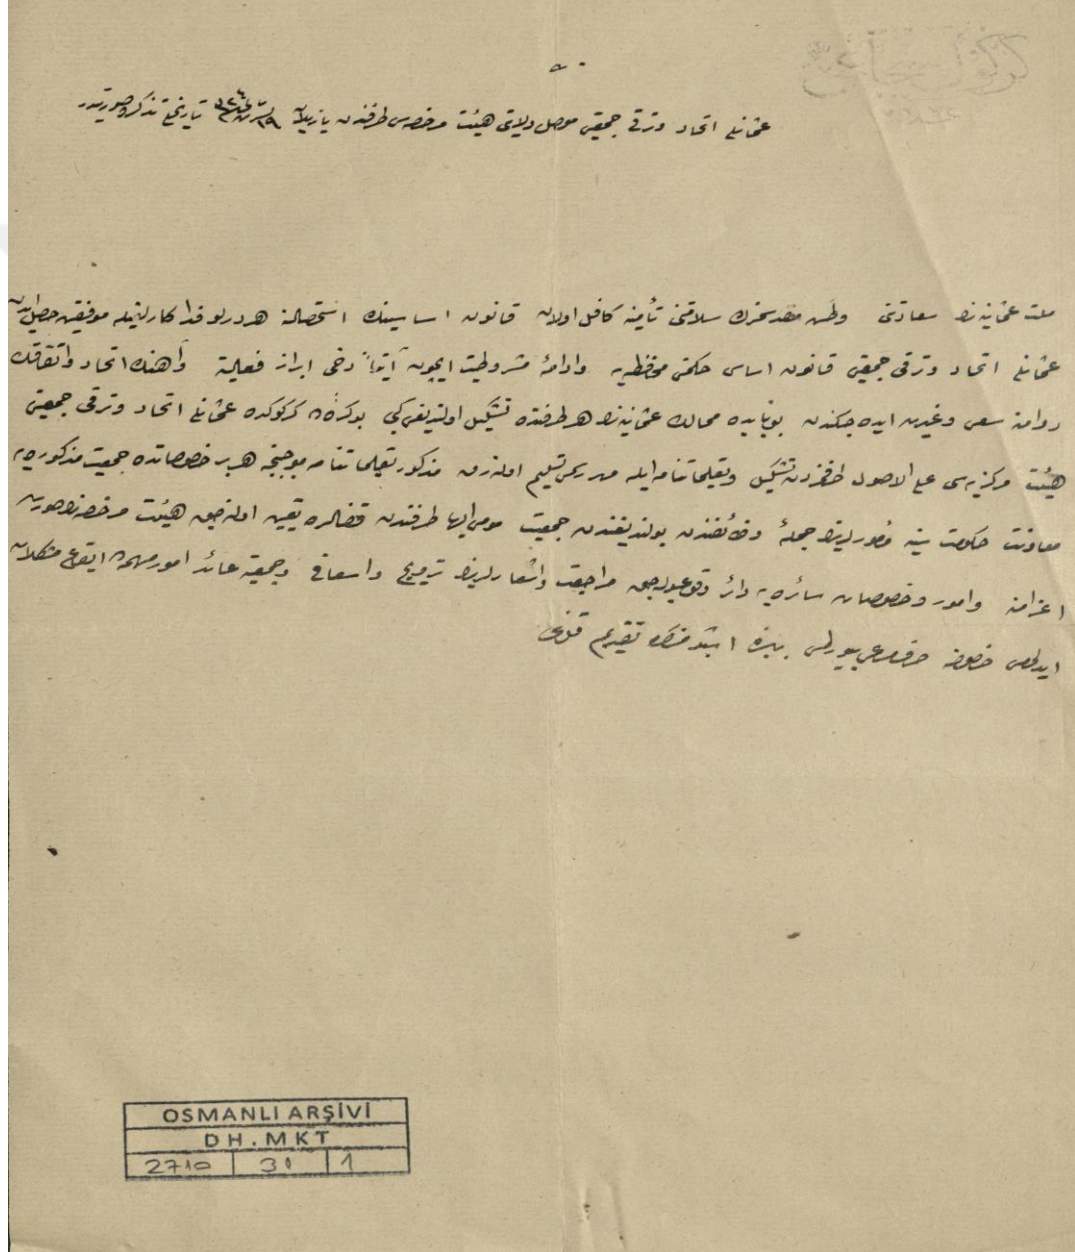 عثمانلى اتحاد وترقى جمعيتى موصل ولايتى هيئت مرخصه سى طرفندن يازيلان تاريخلى تذكره صورتيدر
ملت عثمانيه نك سعادتى وطن مقدسمزك سلامتنى تأمينه كافل اولان قانون اساسينك استحصالنه هر درلو فداكارلغيله موفقيت حاصل ايدن
عثمانلى اتحاد وترقى جمعيتى قانون اساسى حكمنى محافظه يه وادامۀ مشروطيت ايچون آتيا دخى ابراز فعاليت وآهنك اتحاد واتفاقك
دوامنه سعى وغيرت ايده جكندن بو بابده ممالك عثمانيه نك هر طرفنده تشكيل اولنديغى كبى بو كره كركوكده عثمانلى اتحاد وترقى جمعيتى
هيئت مركزيه سى على الاصول طرفمزدن تشكيل وتعليماتنامه ايله مهر رسمى تسليم اولنه رق مذكور تعليماتنامه موجبنجه هر بر خصوصاتده جمعيت مذكوره يه
معاونت حكومت سنيه مأمورلرينك جملۀ وظائفندن بولنديغندن جمعيت مومى اليها طرفندن قضالره تعيين اولنه جق هيئت مرخصه نك صورت
اعزامنه وامور وخصوصات سائره يه دائر وقوعبوله جق مراجعت واشعارلرينك ترويج واسعافى وجمعيته عائد امور مهمه ده ايقاع مشكلات
ايدلمامسى خصوصنه بيورلمق بابنده اشبو تذكره تقديم قلندى
OSMANLI ARŞİVİ
DH.MKT
2710 31 1